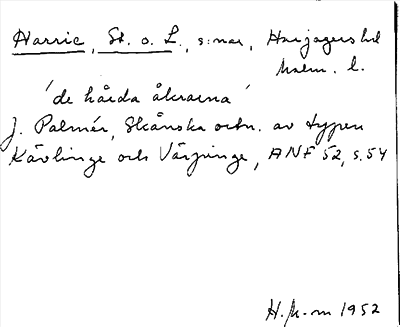 Harrie, St. o. L., s:nar, Harjagers hd
Malm. l.
'de hårda åkrarna'
J. Palmér, Skånska ortn. av typen
Kävlinge och Värpinge, ANF 52, s. 54
H. k-m 1952